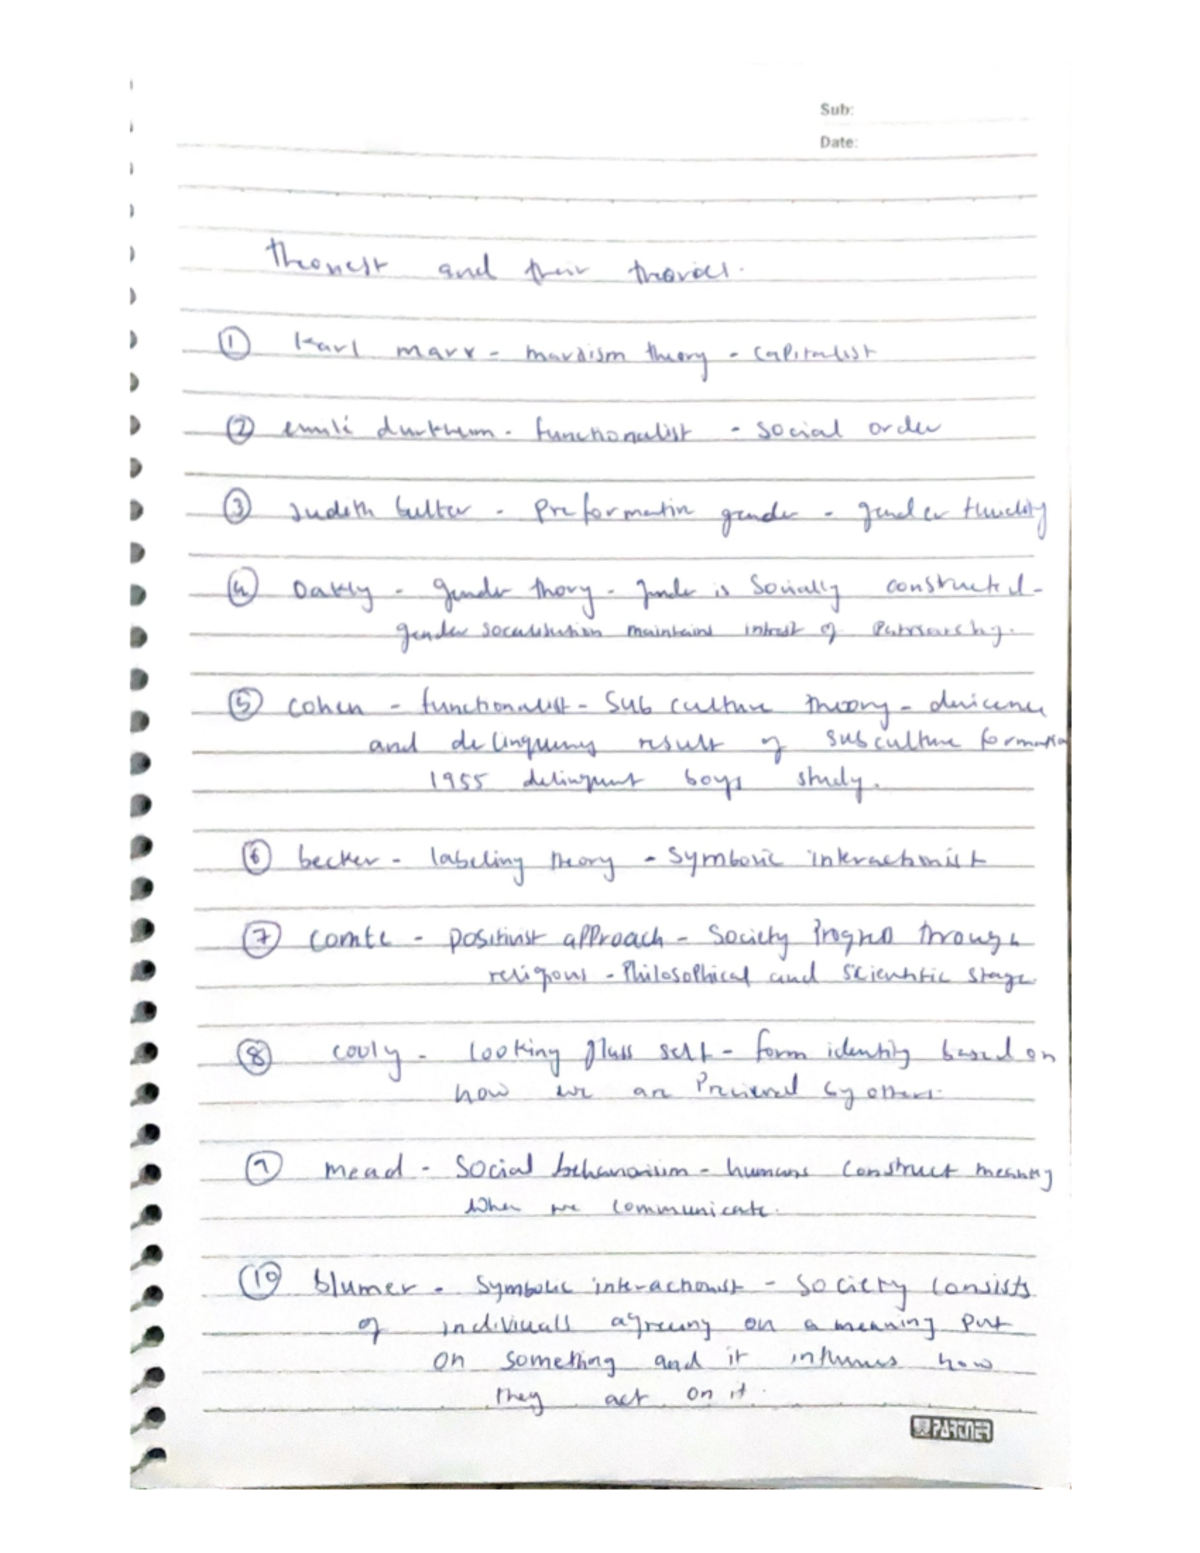 Sub:
Date:
Theorist and their theories.
① Karl marx - marxism theory - capitalist
② emile durkheim - functionalist - social order
③ Judeth butler - Preformatin gender - gender fluidity
④ Oakly - gender thory - gender is Socially constructed -
gender socalisation maintains intrest of Patriarchy.
⑤ cohen - functionalist - Sub culture theory - devicence
and delinquency result of subculture formation
1955 delinquent boys study.
⑥ becker - labeling theory - Symbolic interactionist
⑦ comte - positivist approach - Society Progress through
religious - Philosophical and scientific stage
⑧ cooly - looking glass self - form identity based on
how we are Precieved by others.
⑨ mead - Social behaviorism - humans construct meaning
when we communicate.
⑩ blumer - Symbolic interactionist - Society consists
of individuals agreeing on a meaning put
on something and it influences how
they act on it.
PARTNER